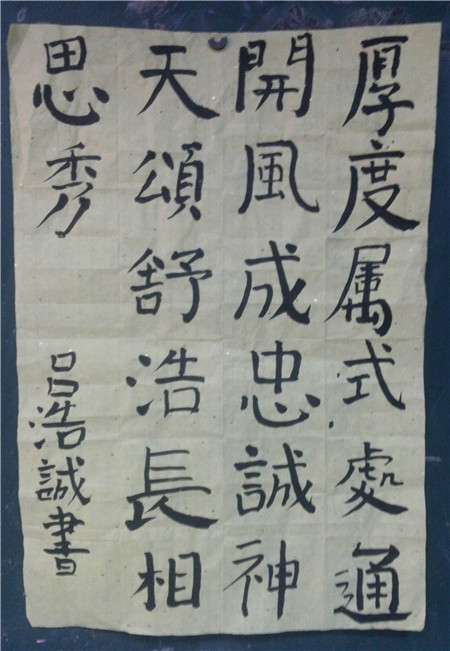 厚度属式處通
開風成忠誠神
天頌舒浩長相
思秀
吕浩誠書